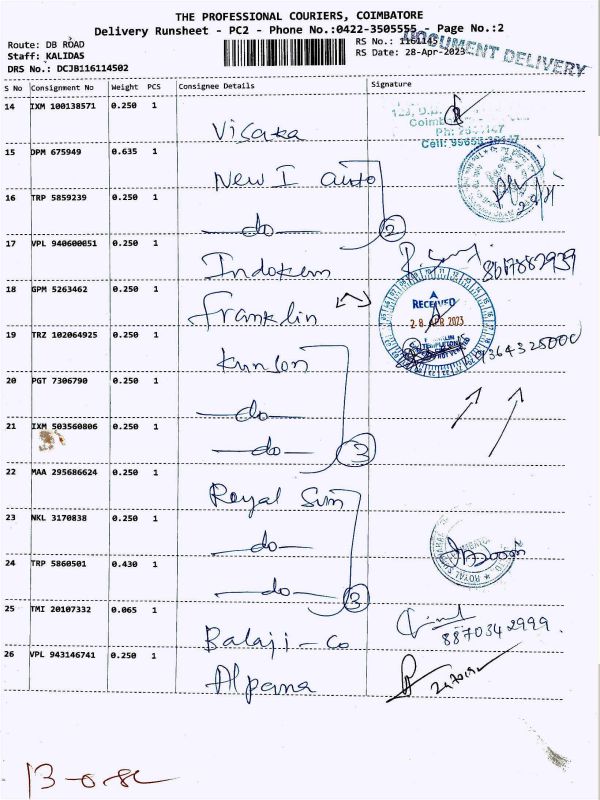 THE PROFESSIONAL COURIERS, COIMBATORE
Delivery Runsheet - PC2 - Phone No.:0422-3505555 - Page No.:2
Route: DB ROAD
RS No.: 1161145
DOCUMENT DELIVERY
Staff: KALIDAS
RS Date: 28-Apr-2023
DRS No.: DCJB116114502
S No Consignment No Weight PCS Consignee Details Signature
14 IXM 100138571 0.250 1 Visaka
15 DPM 675949 0.635 1 New I auto
16 TRP 5859239 0.250 1 —do— 2
17 VPL 940600051 0.250 1 Indokem
18 GPM 5263462 0.250 1 Franklin
RECEIVED
28 APR 2023
19 TRZ 102064925 0.250 1 Kunson
20 PGT 7306790 0.250 1 —do—
21 IXM 503560806 0.250 1 —do— 3
22 MAA 295686624 0.250 1 Royal Sun
23 NKL 3170838 0.250 1 —do—
24 TRP 5860501 0.430 1 —do— 3
25 TMI 20107332 0.065 1 Balaji-Co 8870342999.
26 VPL 943146741 0.250 1 Alpana